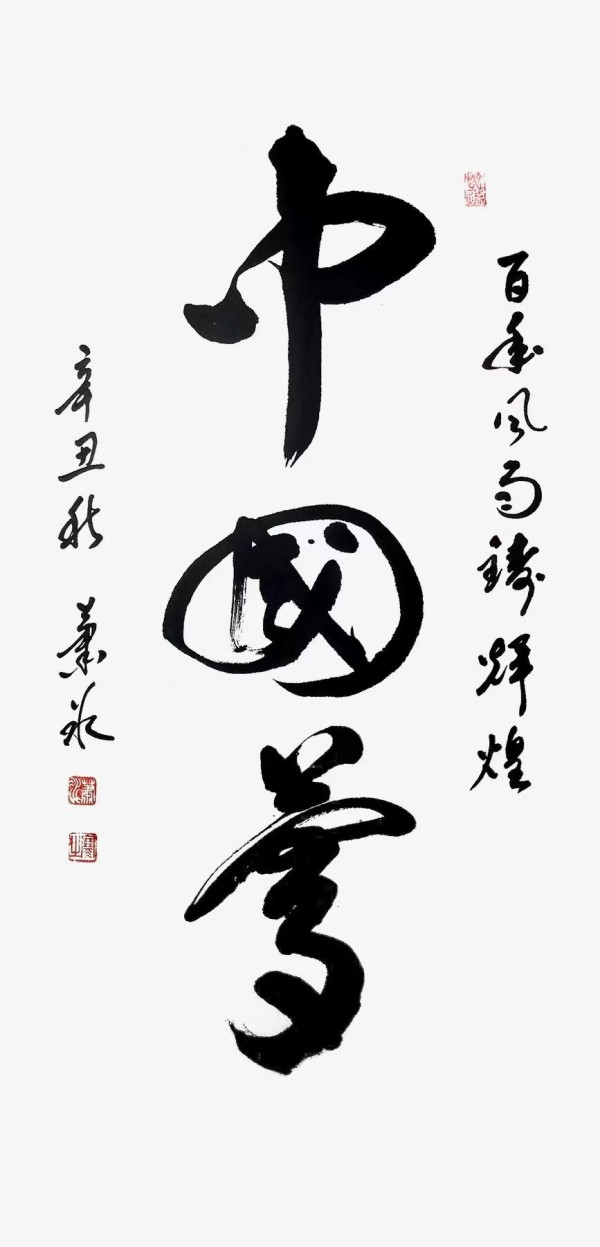 百年风雨铸辉煌
中國夢
辛丑秋 蕭